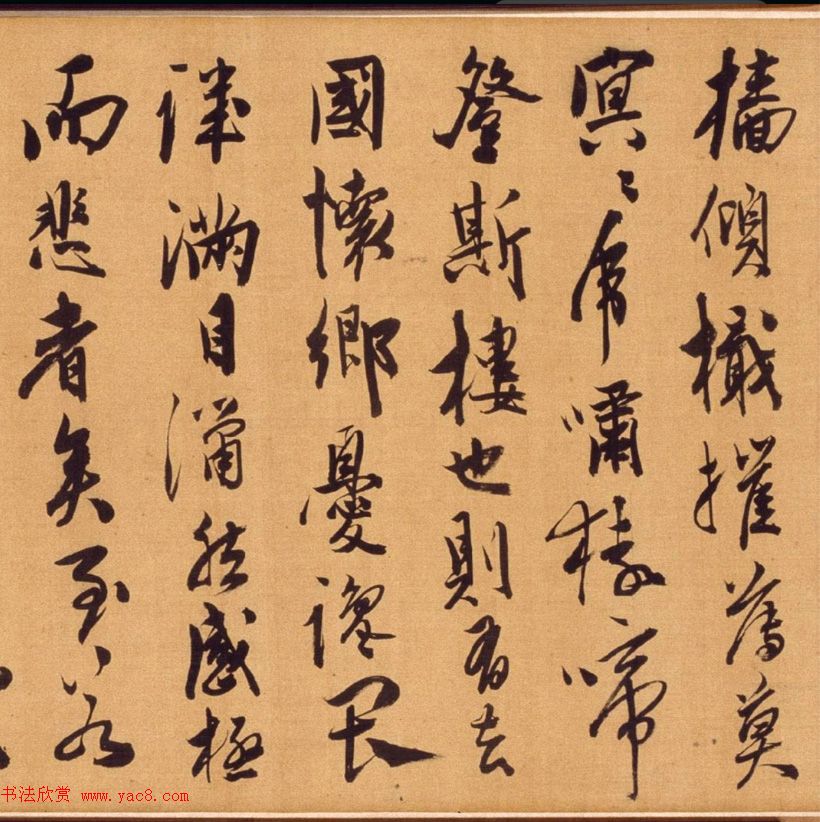 檣傾檝摧薄莫
冥〻虎嘯猨啼
登斯樓也則有去
國懷鄉憂讒畏
譏滿目瀟然感極
而悲者矣至若
书法欣赏 www.yac8.com